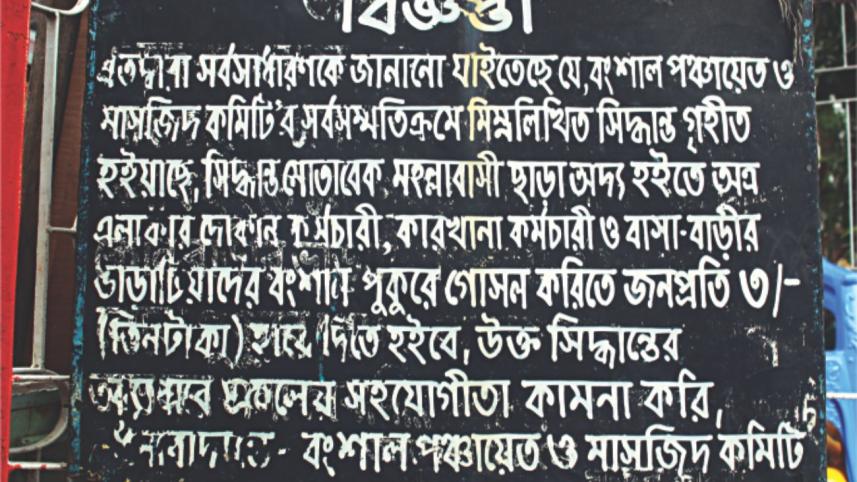 বিজ্ঞপ্তী
এতদ্বারা সর্বসাধারণকে জানানো যাইতেছে যে, বংশাল পঞ্চায়েত ও
মাসজিদ কমিটি'র সর্বসম্মতিক্রমে নিম্নলিখিত সিদ্ধান্ত গৃহীত
হইয়াছে, সিদ্ধান্ত মোতাবেক মহল্লাবাসী ছাড়া অদ্য হইতে অত্র
এলাকার দোকান কর্মচারী, কারখানা কর্মচারী ও বাসা-বাড়ীর
ভাড়াটিয়াদের বংশাল পুকুরে গোসল করিতে জনপ্রতি ৩/-
(তিনটাকা) হারে দিতে হইবে, উক্ত সিদ্ধান্তের
সকলের সহযোগীতা কামনা করি,
বংশাল পঞ্চায়েত ও মাসজিদ কমিটি